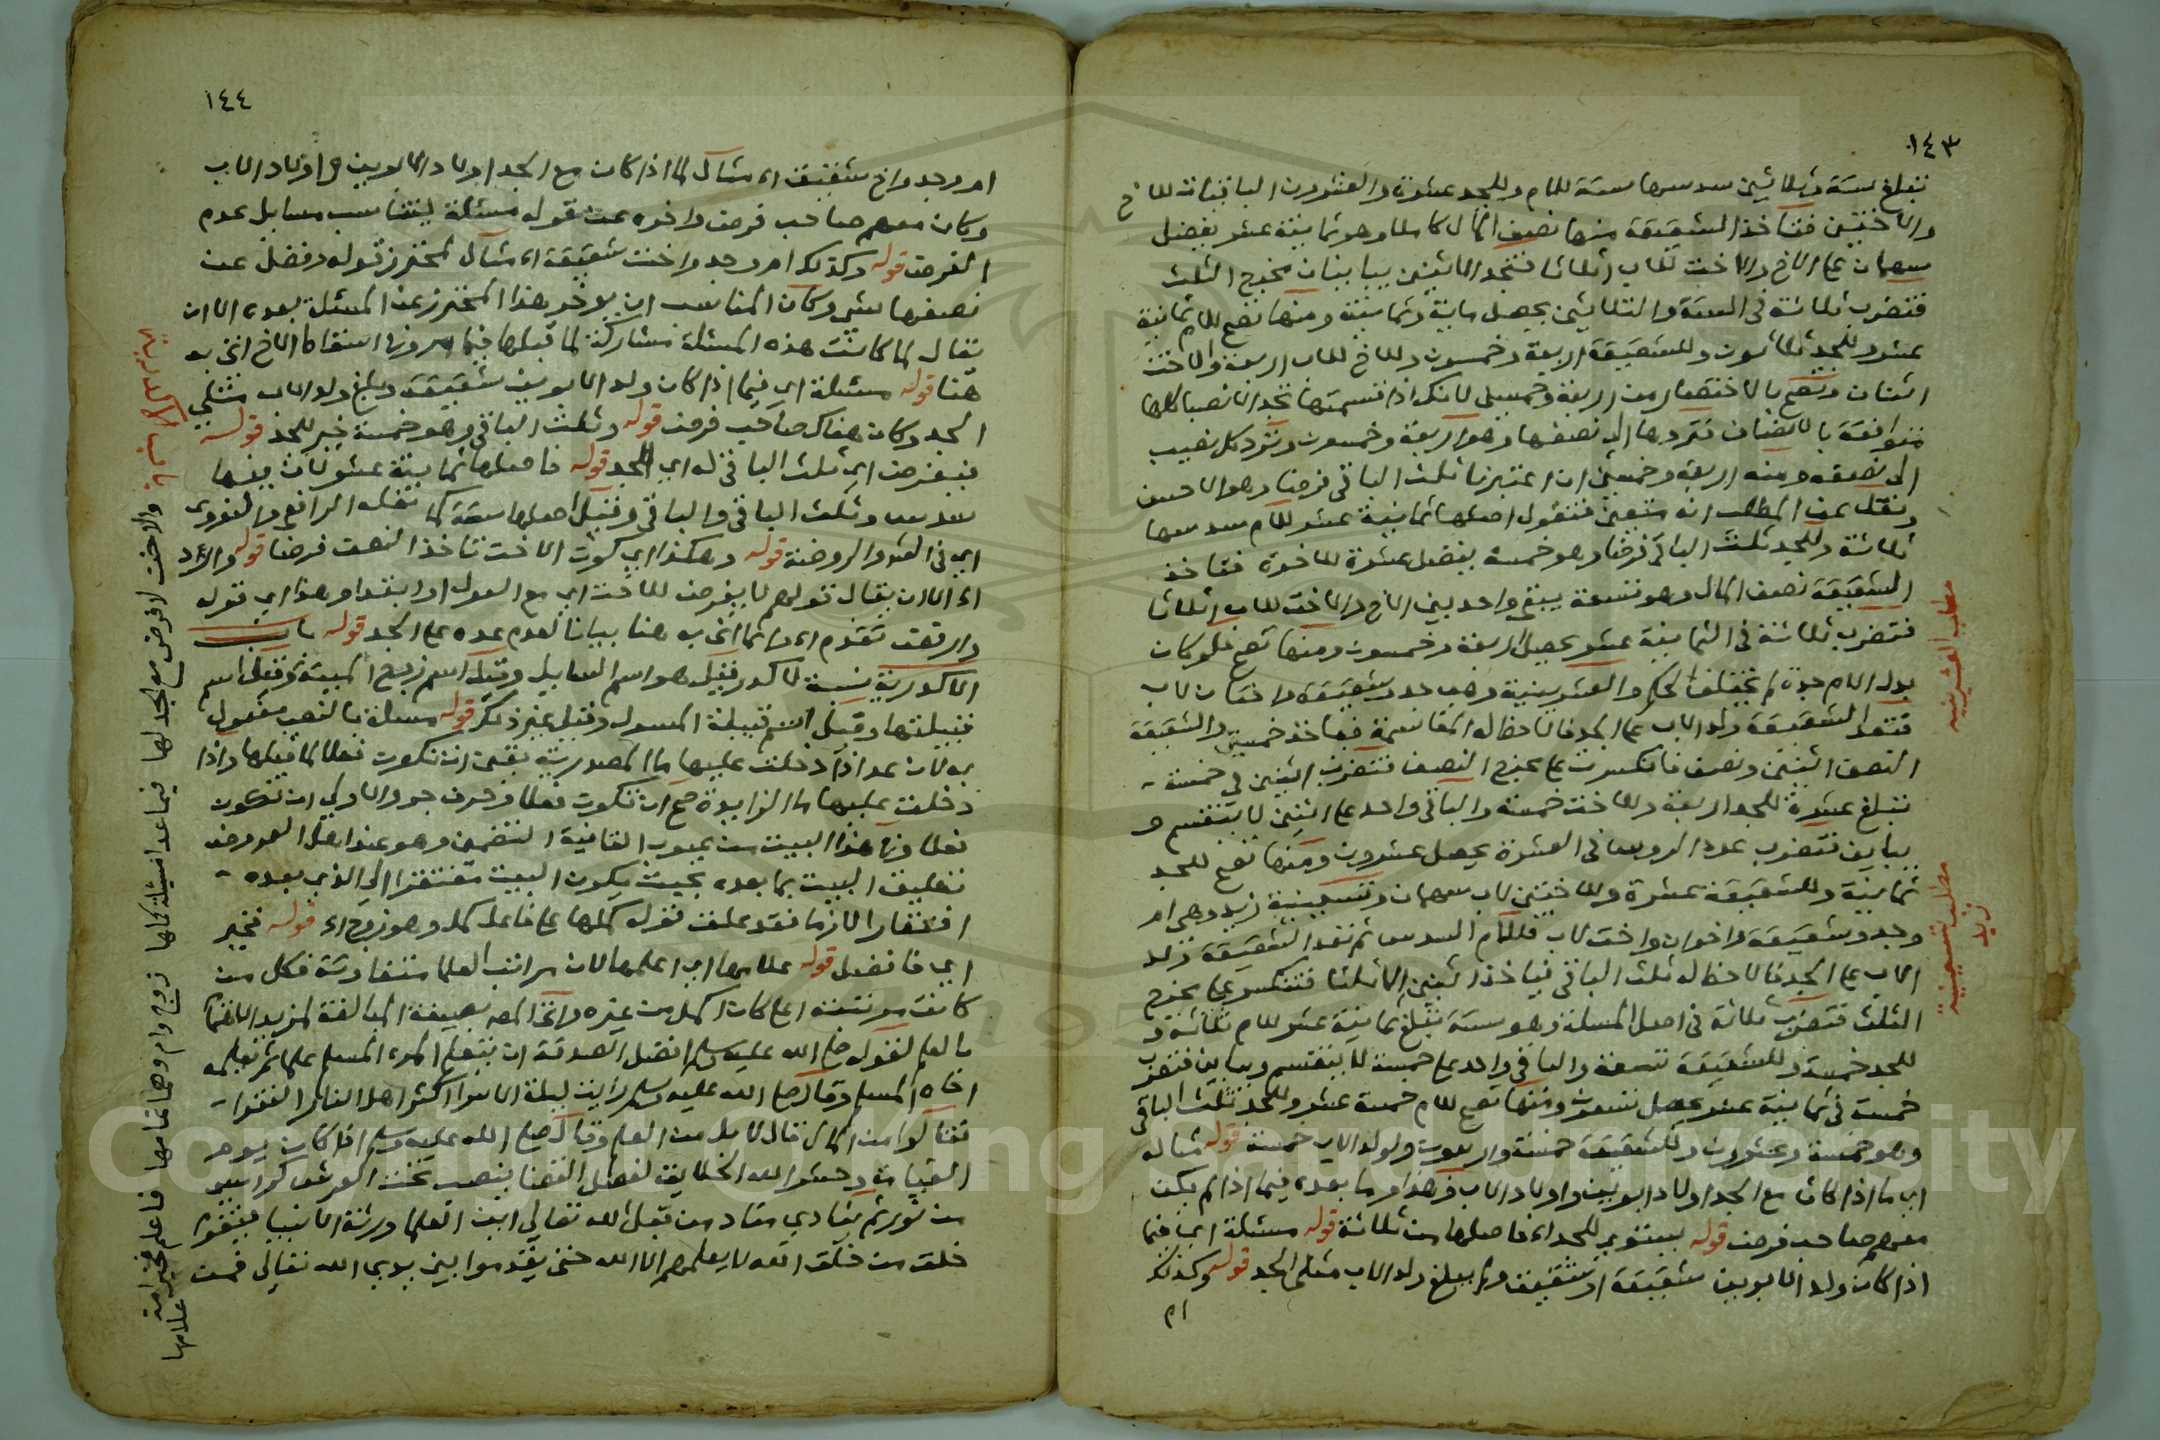 ١٤٣
تبلغ ستة وثلاثين سدسها ستة للام وللجد عشرة والعشرون الباقيات للاخ
والاختين فتاخذ الشقيقة منها نصف المال كاملا وهو ثمانية عشر يفضل
سهمان على الاخ والاخت للاب اثلاثا فتجد الاثنين يباينان مخرج الثلث
فتضرب ثلاثة في الستة والثلاثين يحصل ماية وثمانية ومنها تصح للام ثمانية
عشر وللجد ثلاثون وللشقيقة اربعة وخمسون وللاخ للاب اربعة وللاخت
اثنان وتصح بالاختصار من اربعة وخمسين لانك اذا قسمتها تجد الانصبا كلها
متوافقة بالانصاف فتردها الى نصفها وهو اربعة وخمسون وترد كل نصيب
الى نصفه ومنه اربعة وخمسين ان اعتبرنا ثلث الباقي فرضا وهو الاحسن
ونقل عن المطلب انه متعين فتقول اصلها ثمانية عشر للام سدسها
ثلاثة وللجد ثلث الباقي فرضا وهو خمسة يفضل عشرة للاخوة فتاخذ
الشقيقة نصف المال وهو تسعة يبقى واحد بين الاخ والاخت للاب اثلاثا
فتضرب ثلاثة في الثمانية عشر يحصل اربعة وخمسون ومنها تصح فلو كان
بدل الام جدة لم يختلف الحكم والعشرينية وهي جد وشقيقة واختان لاب
فتعد الشقيقة ولد الاب على الجد فالاحظ له المقاسمة فياخذ خمسين والشقيقة
النصف اثنين ونصف فانكسرت على مخرج النصف فتضرب اثنين في خمسة
تبلغ عشرة للجد اربعة وللاخت خمسة والباقي واحد على اثنين لا ينقسم و
يباين فتضرب عدد الروس في العشرة يحصل عشرون ومنها تصح للجد
ثمانية وللشقيقة عشرة وللاختين لاب سهمان وتسعينية زيد وهي ام
وجد وشقيقة واخوان واخت لاب فللام السدس ثم تعد الشقيقة ولد
الاب على الجد فالاحظ له ثلث الباقي فياخذ اثنين الا ثلثا فتنكسر على مخرج
الثلث فتضرب ثلاثة في اصل المسئلة وهو ستة يبلغ ثمانية عشر للام ثلاثة و
للجد خمسة وللشقيقة تسعة والباقي واحد على خمسة لا ينقسم ويباين فتضرب
خمسة في ثمانية عشر يحصل تسعون ومنها تصح للام خمسة عشر وللجد ثلث الباقي
وهو خمسة وعشرون وللشقيقة خمسة واربعون ولولد الاب خمسة قوله مثاله
اي ما اذا كان مع الجد اولاد ابوين واولاد الاب وهذا وما بعده فيما اذا لم يكن
معهم صاحب فرض قوله يستوي للجد اء فاصلها من ثلاثة قوله مسئلة اي فيما
اذا كان ولد الابوين شقيقة او شقيق ولم يبلغ ولد الاب مثلي الجد قوله وكذلك
ام
مطلب العشرينية
مطلب تسعينية
زيد
١٤٤
ام وجد واخ شقيق اء مثال لما اذا كان مع الجد اولاد الابوين او اولاد الاب
وكان معهم صاحب فرض واخره عن قوله مسئلة ليتناسب مسايل عدم
الفرض قوله وكذلك ام وجد واخت شقيقة اء مثال لمحترز قوله وفضل عن
نصفها شي وكان المناسب ان يوخر هذا المحترز عن المسئلة بعده الا ان
يقال لما كانت هذه المسئلة مشاركة لما قبلها فيما مر وفي اسقاط الاخ اتى به
هنا قوله مسئلة اي فيما اذا كان ولد الابوين شقيقة وبلغ ولد الاب مثلي
الجد وكان هناك صاحب فرض قوله وثلث الباقي وهو خمسة خير للجد قوله
فيفرض اي ثلث الباقي له اي الجد قوله فاصلها ثمانية عشر لان فيها
سدس وثلث الباقي والباقي وقيل اصلها ستة كما نقله الرافعي والنووي
اي في الشرح والروضة قوله وهكذا اي كون الاخت تاخذ النصف فرضا قوله والرد
اء الا ان يقال قولهم لا يفرض للاخت اي مع العول او ابتداء وهذا اي قوله
وان رفعت تقدم اء وانما اتى به هنا بيانا لعدم عده على الجد قوله باب
الاكدرية نسبة لاكدر فقيل هو اسم السايل وقيل اسم زوج الميتة وقيل اسم
قبيلتها وقيل اسم قبيلة المسول وقيل غير ذلك قوله مسئلة بالنصب مفعول
به لان عد اذا دخلت عليها ما المصدرية تعين ان تكون فعلا لما قبلها واذا
دخلت عليها ما الزايدة صح ان تكون فعلا وحرف جر والاولى ان تكون
فعلا وفي هذا البيت من عيوب القافية التضمين وهو عند اهل العروض
تعليق البيت بما بعده بحيث يكون البيت مفتقرا الى الذي بعده
افتقارا لازما فقد علقت قوله كملها على فاعل كمل وهو زوج اء قوله فخير
اي فافضل قوله علامها اي اعلمها لان مراتب العلما متفاوتة فكل من
كانت مرتبته اعلى كان اكمل من غيره وانما المص بصيغة المبالغة لمزيد الاعتنا
بالعلم لقوله صلى الله عليه وسلم افضل الصدقة ان يتعلم المرء المسلم علما ثم يعلمه
اخاه المسلم وقال صلى الله عليه وسلم رايت ليلة الاسرا اكثر اهل النار الفقرا
فقالوا من المال قال لا بل من العلم وقال صلى الله عليه وسلم اذا كان يوم
القيامة وحشر الله الخلايق لفصل القضا ينصب تحت العرش كراسي
من نور ثم ينادي مناد من قبل الله تعالى اين العلما ورثة الانبيا فيقوم
خلق من خلق الله لا يعلمهم الا الله حتى يقدموا بين يدي الله تعالى فمن
والاخت لا فرض مع الجد لها فيما عدا مسئلة كملها زوج وام وهما تمامها فاعلم فخير امة علامها